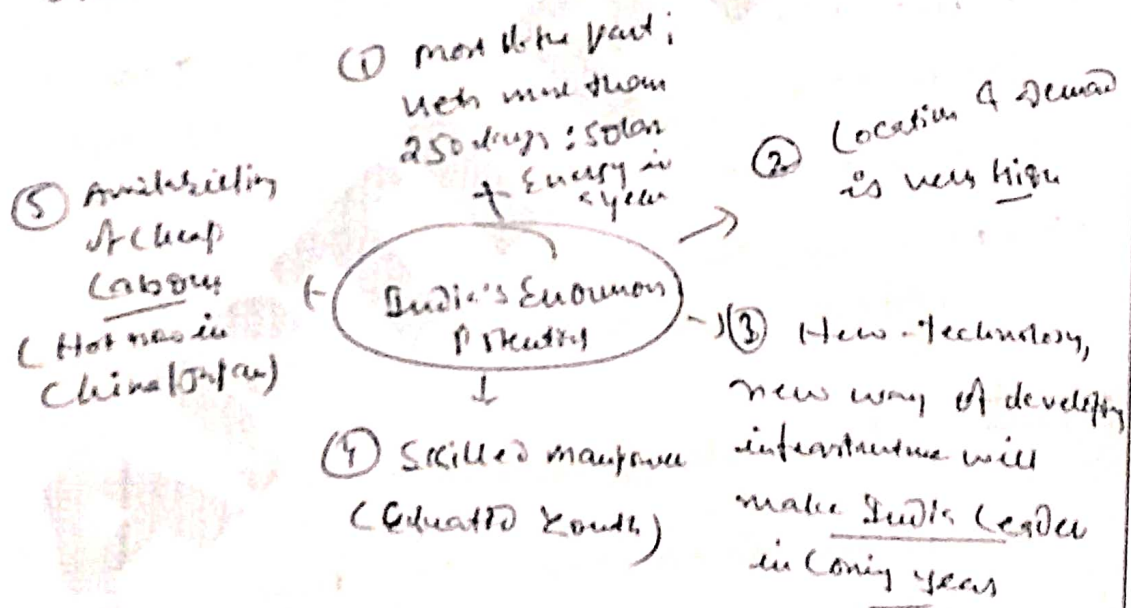 ① most of the part ;
gets more than
250 days : solar
Energy in
a year
② Location & Demand
is very high
India's Enoumous
Potential
③ New-Technology,
new way of developing
infrastructure will
make India Leader
in Coming years
④ Skilled manpower
(Educated Youth)
⑤ Availability
of Cheap
Labour
( in
China/Japan)